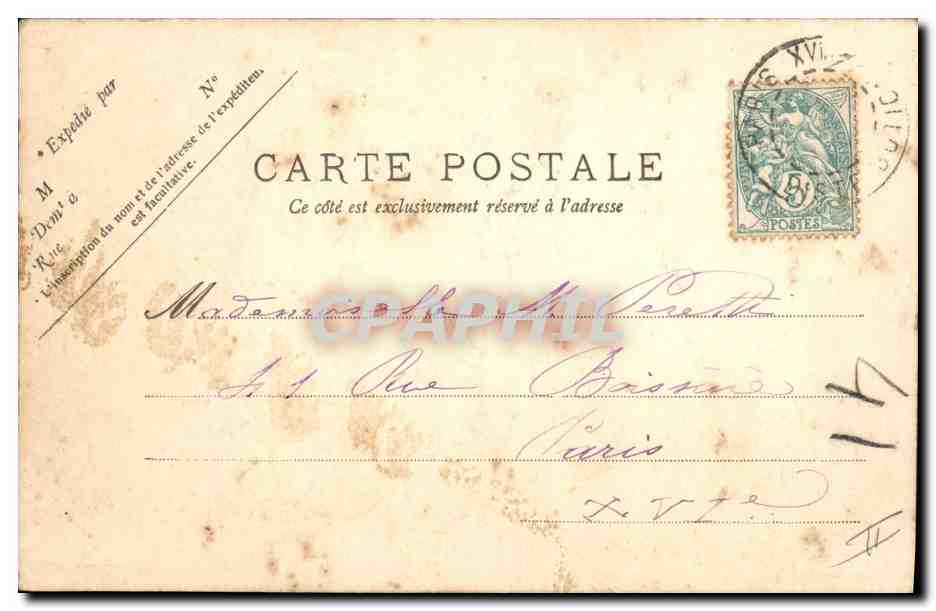 Expédié par
N°
M
Demt à
Rue
L'inscription du nom et de l'adresse de l'expéditeur
est facultative.
CARTE POSTALE
Ce côté est exclusivement réservé à l'adresse
PARIS XVI
5
POSTES
Mademoiselle M. Peretti
CPAPHIL
41 Rue Boissière
Paris
XVIe
II